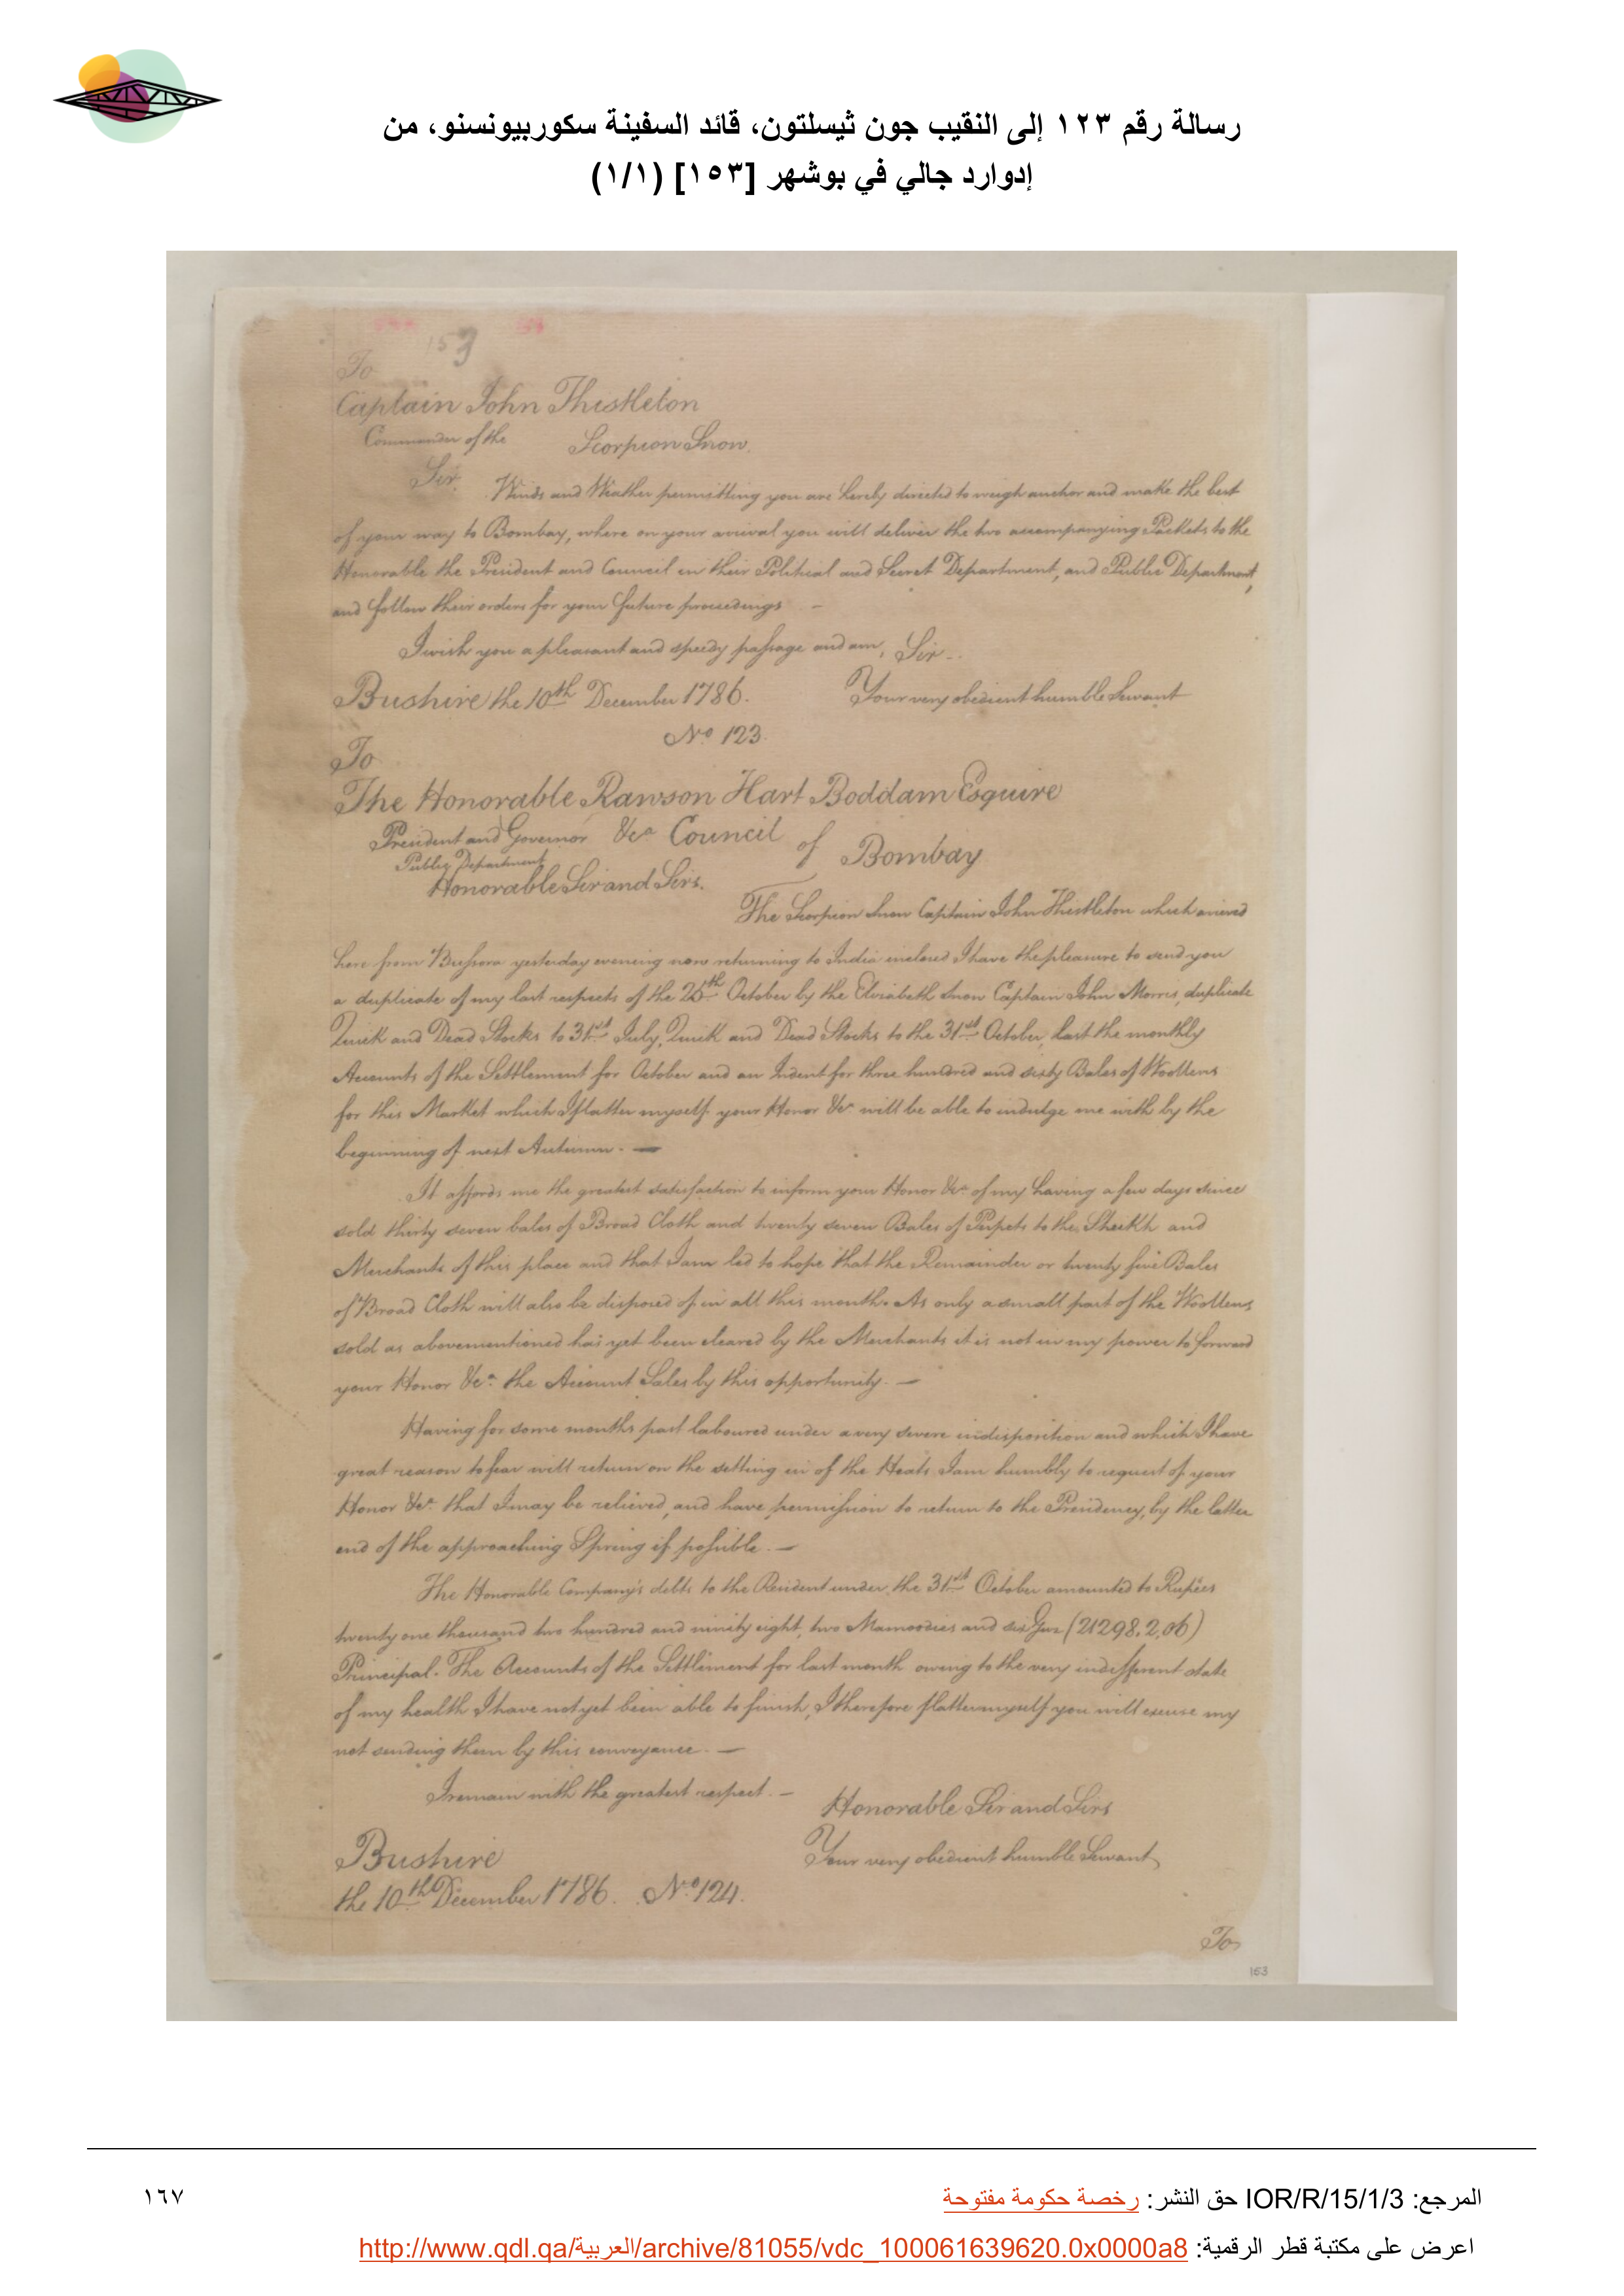 رسالة رقم ١٢٣ إلى النقيب جون ثيسلتون، قائد السفينة سكوربيونسنو، من
إدوارد جالي في بوشهر [١٥٣] (١/١)
153
To
Captain John Thistleton
Commander of the Scorpion Snow.
Sir. Winds and Weather permitting you are hereby directed to weigh anchor and make the best
of your way to Bombay, where on your arrival you will deliver the two accompanying Packets to the
Honorable the President and Council in their Political and Secret Department, and Public Department,
and follow their orders for your future proceedings —
I wish you a pleasant and speedy passage and am, Sir -
Bushire the 10th December 1786. Your very obedient humble Servant
No 123.
To
The Honorable Rawson Hart Boddam Esquire
President and Governor &ca Council of Bombay
Public Department
Honorable Sir and Sirs.
The Scorpion Snow Captain John Thistleton which arrived
here from Bussora yesterday evening now returning to India inclosed I have the pleasure to send you
a duplicate of my last respects of the 25th October by the Elizabeth Snow Captain John Morris, duplicate
Quick and Dead Stocks to 31st July, Quick and Dead Stocks to the 31st October, last the monthly
Accounts of the Settlement for October and an Indent for three hundred and sixty Bales of Woollens
for this Market which I flatter myself your Honor &ca will be able to indulge me with by the
beginning of next Autumn. —
It affords me the greatest satisfaction to inform your Honor &ca of my having a few days since
sold thirty seven bales of Broad Cloth and twenty seven Bales of Perpets to the Sheikh and
Merchants of this place and that I am led to hope that the Remainder or twenty five Bales
of Broad Cloth will also be disposed of in all this month. As only a small part of the Woollens
sold as abovementioned has yet been cleared by the Merchants it is not in my power to forward
your Honor &ca the Account Sales by this opportunity. —
Having for some months past laboured under a very severe indisposition and which I have
great reason to fear will return on the setting in of the Heats I am humbly to request of your
Honor &ca that I may be relieved, and have permission to return to the Presidency, by the latter
end of the approaching Spring if possible. —
The Honorable Company's debts to the Resident under the 31st October amounted to Rupees
twenty one thousand two hundred and ninety eight, two Mamoodies and six Guz (21298.2.06)
Principal. The Accounts of the Settlement for last month owing to the very indifferent state
of my health I have not yet been able to finish, I therefore flatter myself you will excuse my
not sending them by this conveyance. —
I remain with the greatest respect. — Honorable Sir and Sirs
Bushire Your very obedient humble Servant
the 10th December 1786. No 124.
To
153
المرجع: IOR/R/15/1/3 حق النشر: رخصة حكومة مفتوحة
١٦٧
اعرض على مكتبة قطر الرقمية: http://www.qdl.qa/العربية/archive/81055/vdc_100061639620.0x0000a8